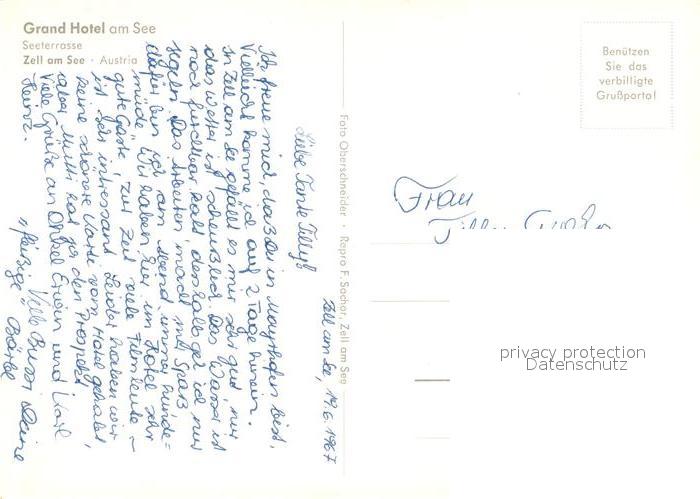 Grand Hotel am See
Seeterrasse
Zell am See · Austria
Benützen
Sie das
verbilligte
Grußporto!
Foto Oberschneider · Repro F. Sochor, Zell am See
Zell am See, 19.6.1967
Liebe Tante Tilly!
Ich freue mich, daß du in Mayrhofen bist,
Vielleicht komme ich auf 2 Tage hinein.
In Zell am See gefällt es mir sehr gut, nur
das Wetter ist scheußlich. Das Wasser ist
noch furchtbar kalt, deshalb geh ich nur
segeln. Das Arbeiten macht mir Spaß
dafür bin ich am Abend immer hunde=
müde. Wir haben hier im Hotel sehr
gute Gäste, zur Zeit viele Filmleute ~
ist sehr interessant. Leider haben wir
keine schönere Karte vom Hotel gehabt,
aber Mutti hat ja den Prospekt.
Viele Grüße an Onkel Erwin und Karl
Heinz.
Viele Bussi Deine
"fleißige" Bärbel
Frau
Tilly
privacy protection
Datenschutz